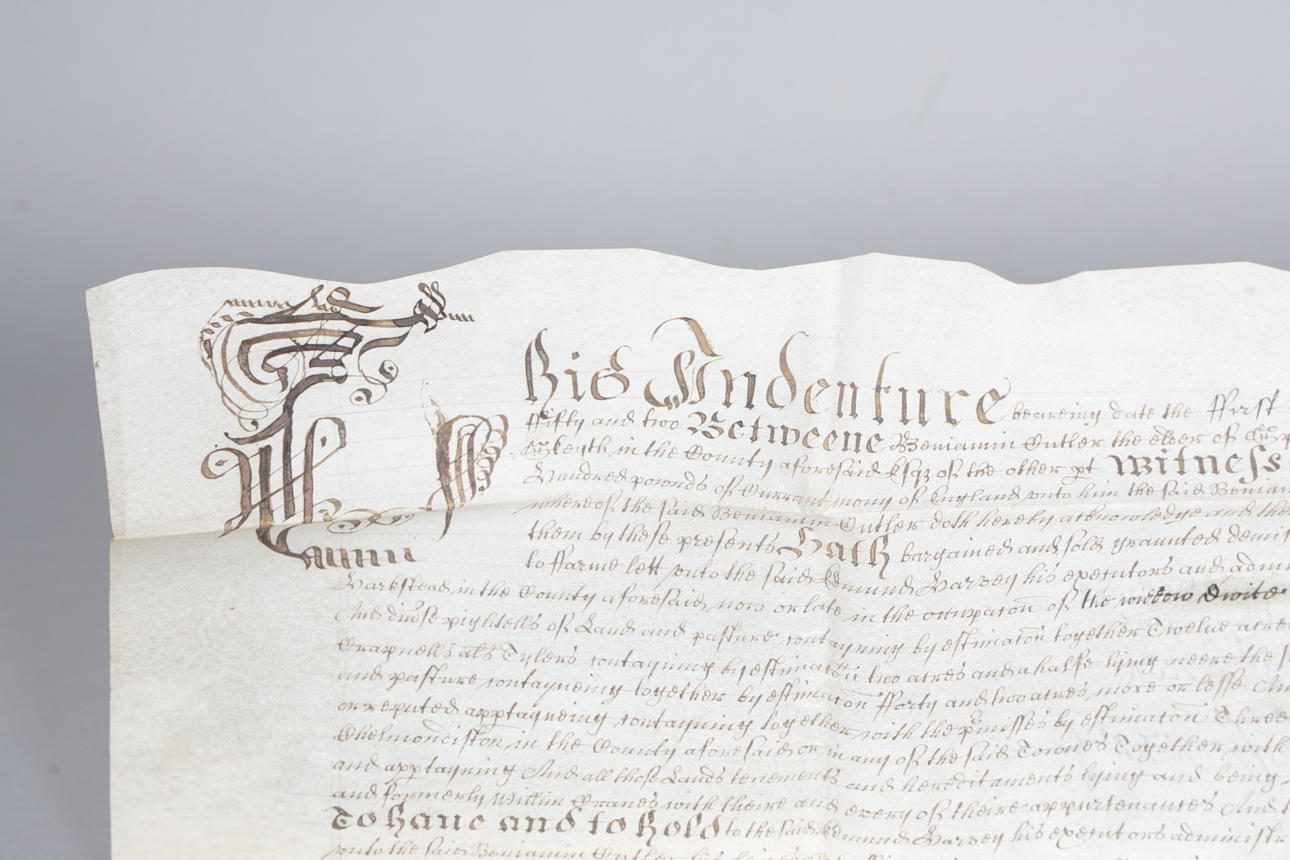 This Indenture beareing date the ffirst
ffifty and two Betweene Beniamin Cutler the elder of
in the County aforesaid Esqz of the other pt Witness
Hundred pounds of Currant mony of England vnto him the said Beniam
whereof the said Beniamin Cutler doth hereby acknowledge and the
them by these presents Hath bargained and sold graunted demis
to ffarme lett vnto the said Edmund Harvey his executors and admin
Harkstead in the County aforesaid now or late in the occupacon of the widow
And diu'se pightells of Land and pasture contayning by estimacon together Twelue acres
Crapnells als Tylers contayning by estimacon two acres and a halfe lying neere the s
and pasture contayneing together by estimacon fforty and two acres more or lesse An
or reputed apptayneing contayning together with the p'misses by estimacon Three
Chelmondiston in the County aforesaid or in any of the said Townes Together with
and apptayning And all those Lands tenements and hereditaments lying and being
and formerly Willm Cranes with theire and every of theire appurtenances And
To haue and to hold to the said Edmund Harvey his executors administr
vnto the said Beniamin Cutler his